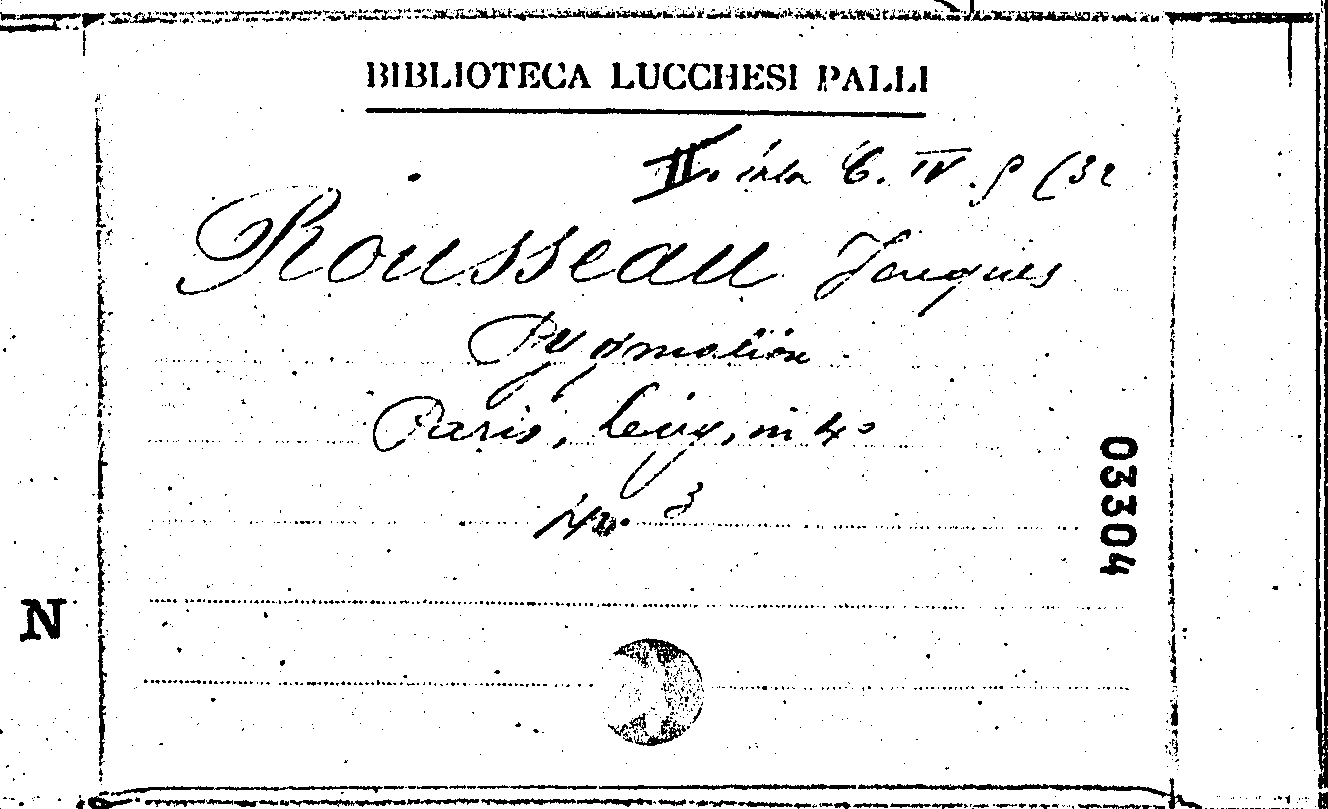 BIBLIOTECA LUCCHESI PALLI
II. sala C. IV. 9 (32
Rousseau Jacques
Pygmalion
Paris, Levy, in 4°
03304
N